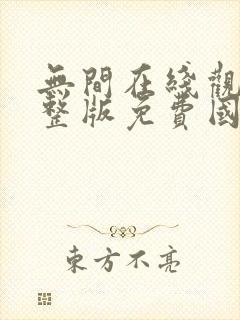 無間在綫觀
整版免費國
東方不亮